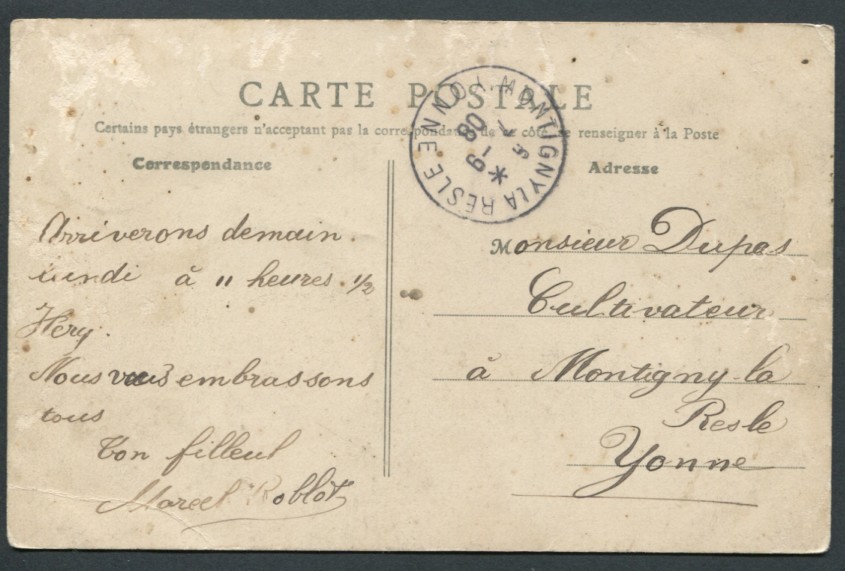 CARTE POSTALE
Certains pays étrangers n'acceptant pas la correspondance de ce côté, se renseigner à la Poste
Correspondance
Arriverons demain.
lundi à 11 heures 1/2
Hery.
Nous vous embrassons
tous
Ton filleul
Marcel Roblot
Adresse
Monsieur Dupas
Cultivateur
à Montigny-la
Resle
Yonne
MONTIGNY LA RESLE
YONNE